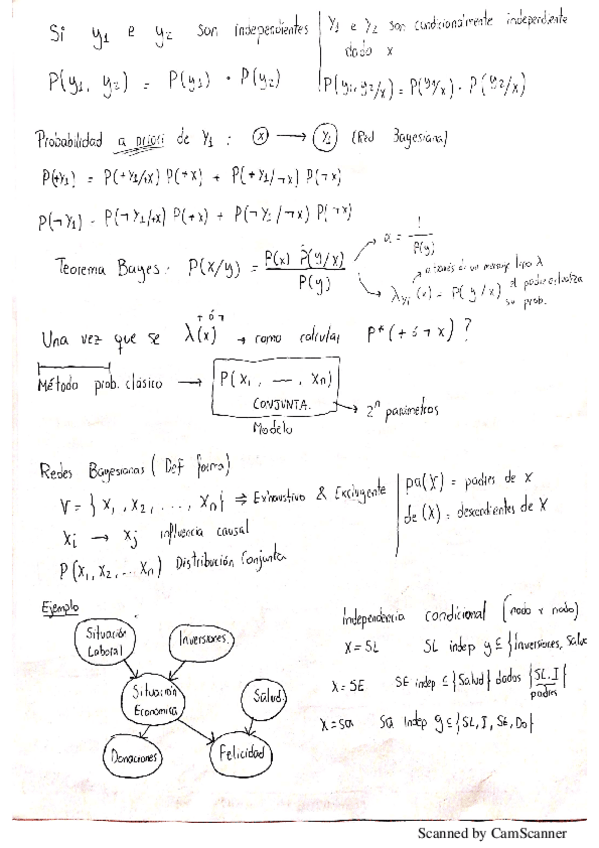 Si y1 e y2 son independientes
P(y1, y2) = P(y1) · P(y2)
y1 e y2 son condicionalmente independiente
dado x
P(y1, y2/x) = P(y1/x) · P(y2/x)
Probabilidad a priori de Y1 : x → Y1 (Red Bayesiana)
P(+Y1) = P(+Y1/+x) P(+x) + P(+Y1/¬x) P(¬x)
P(¬Y1) = P(¬Y1/+x) P(+x) + P(¬Y1/¬x) P(¬x)
Teorema Bayes: P(X/y) = P(x) P(y/x) / P(y)
α = 1 / P(y)
a través de un mensaje tipo λ
λYi (x) = P(y/x) el padre actualiza
su prob.
+ ó ¬
Una vez que se λ(x) → como calcular P*(+ ó ¬ x) ?
Método prob. clásico → P(X1, —, Xn)
CONJUNTA.
→ 2^n parámetros
Modelo
Redes Bayesianas (Def forma)
V = { X1, X2, ..., Xn} ⇒ Exhaustivo & Excluyente
Xi → Xj influencia causal
P(X1, X2, ... Xn) Distribución Conjunta
pa(X) = padres de X
de(X) = descendientes de X
Ejemplo
Situación
Laboral
Inversiones.
Situación
Economica
Salud.
Donaciones
Felicidad
Independencia condicional (nodo x nodo)
X = SL SL indep y ⊆ {Inversiones, Salud
X = SE SE indep ⊆ {Salud} dados {SL, I}
padres
X = Sa Sa indep y ⊆ {SL, I, SE, Do}
Scanned by CamScanner